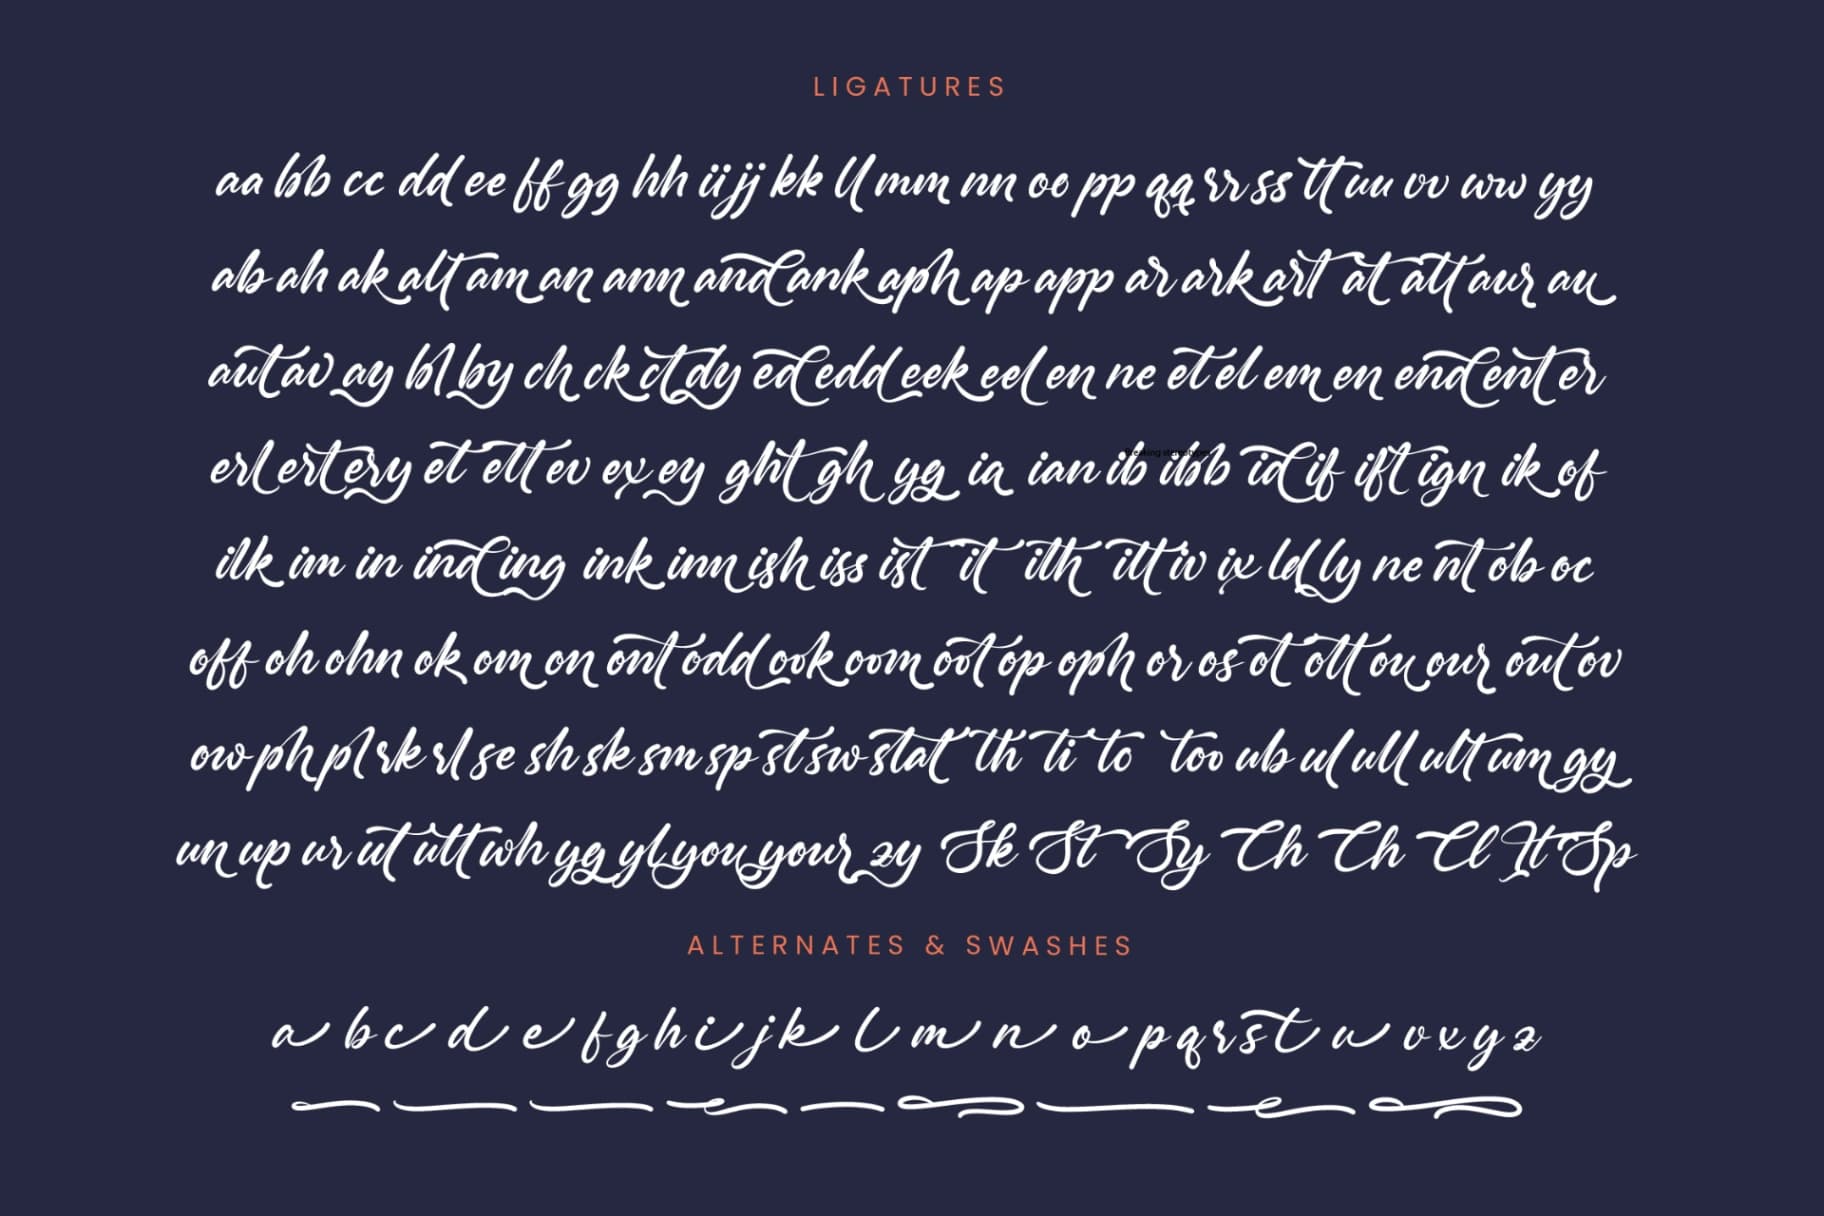 LIGATURES
aa bb cc dd ee ff gg hh ii jj kk ll mm nn oo pp qq rr ss tt uu vv ww yy
ab ah ak alt am an ann and ank aph ap app ar ark art at att aur au
aut av ay bl by ch ck ct dy ed edd eek eel en ne et el em en end ent er
erl ert ery et ett ev ex ey ght gh yg ia ian ib ibb id if ift ign ik of
Breaking stereotypes
ilk im in ind ing ink inn ish iss ist it ith itt iv ix ld ly ne nt ob oc
off oh ohn ok om on ont odd ook oom oot op oph or os ot ott ou our out ov
ow ph pl rk rl se sh sk sm sp st sw stat th ti to too ub ul ull ult um gy
un up ur ut utt wh yg yl you your zy Sk St Sy Ch Ch Cl It Sp
ALTERNATES & SWASHES
a b c d e f g h i j k l m n o p q r s t u v x y z